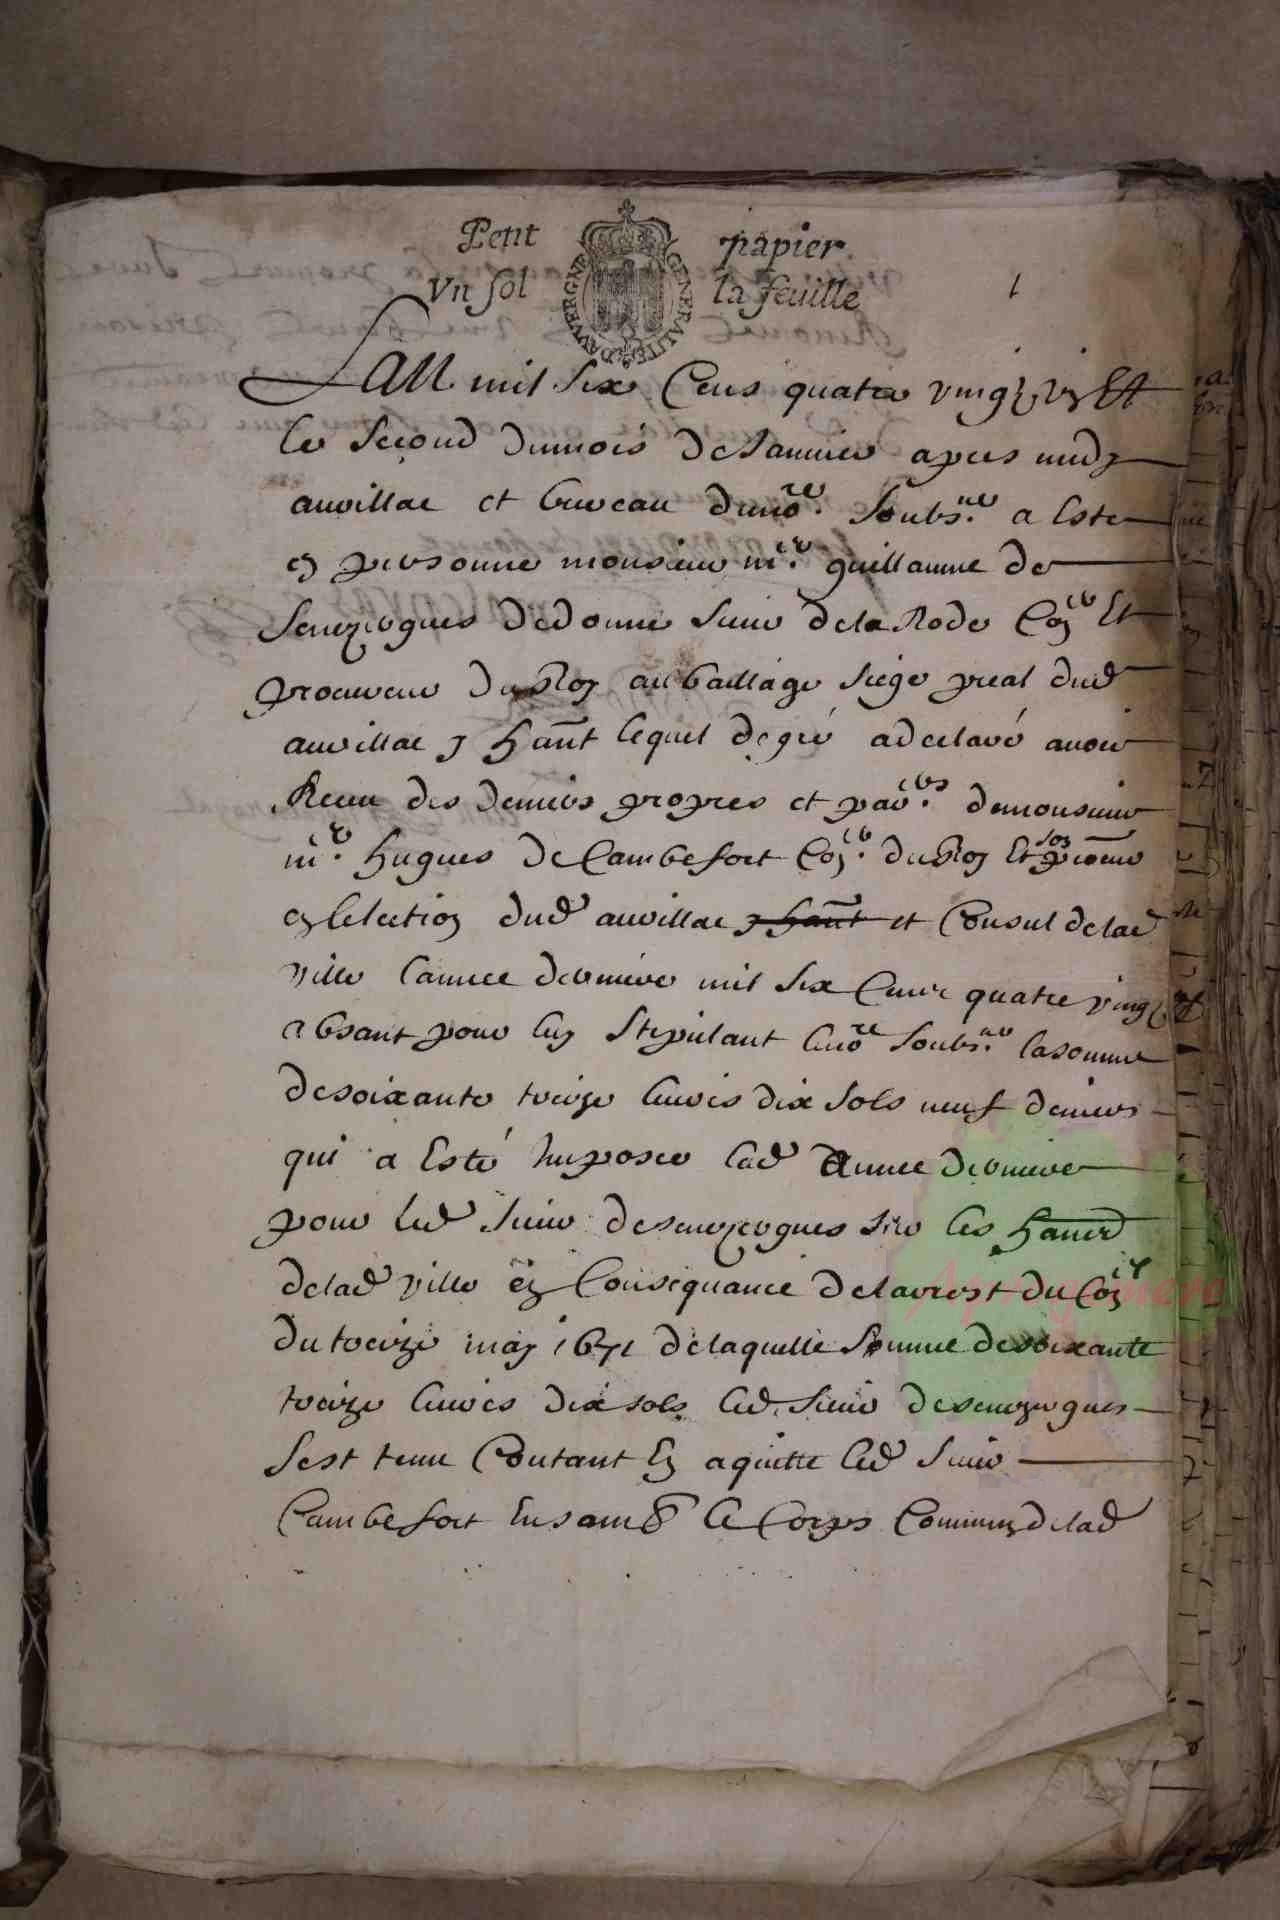 Petit papier
Vn sol la feuille
GENERALITE DAVVERGNE
1
Lan mil six Cens quatre vingz Et
le second dumois deJanvier apres midy
auvillac et bureau dunore. soubs.ne a Este
en personne monsieur me. guillaume de
Senezergues dedonne sieur delaRode Coner Et
procureur du Roy au baillage siege preal dud
auvillac y hant lequel degré adeclaré avoir
Receu des deniers propres et par.ers demonsieur
me. hugues deCambefort Coner. duRoy Et son procureur
en Lelection dud auvillac y hant et Consul delad
ville lannee derniere mil six Cens quatre vingz
absant pour luy stipulant lenore soubs.ne lasomme
desoixante treize livres dix sols neuf deniers
qui a Esté Imposee lad annee derniere
pour led sieur desenezergues sur les hants
delad ville en Consequance delarrest du Conel
du treize may 1671 delaquelle somme desoixante
treize livres dix sols led sieur desenezergues
sest tenu Contant En aquitte led sieur
Cambefort Ensamb le Corps Commun delad